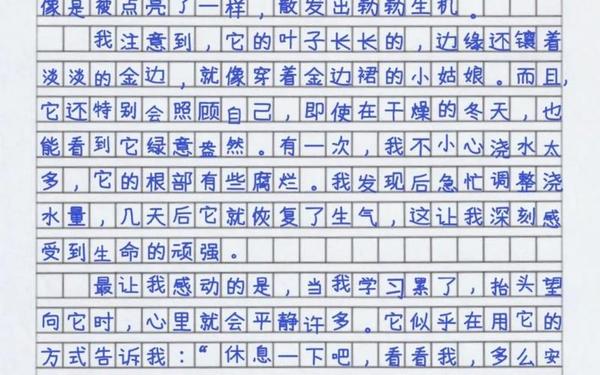 像是被点亮了一样，散发出勃勃生机。
我注意到，它的叶子长长的，边缘还镶着
淡淡的金边，就像穿着金边裙的小姑娘。而且，
它还特别会照顾自己，即使在干燥的冬天，也
能看到它绿意盎然。有一次，我不小心浇水太
多，它的根部有些腐烂。我发现后急忙调整浇
水量，几天后它就恢复了生气，这让我深刻感
受到生命的顽强。
最让我感动的是，当我学习累了，抬头望
向它时，心里就会平静许多。它似乎在用它的
方式告诉我：“休息一下吧，看看我，多么安